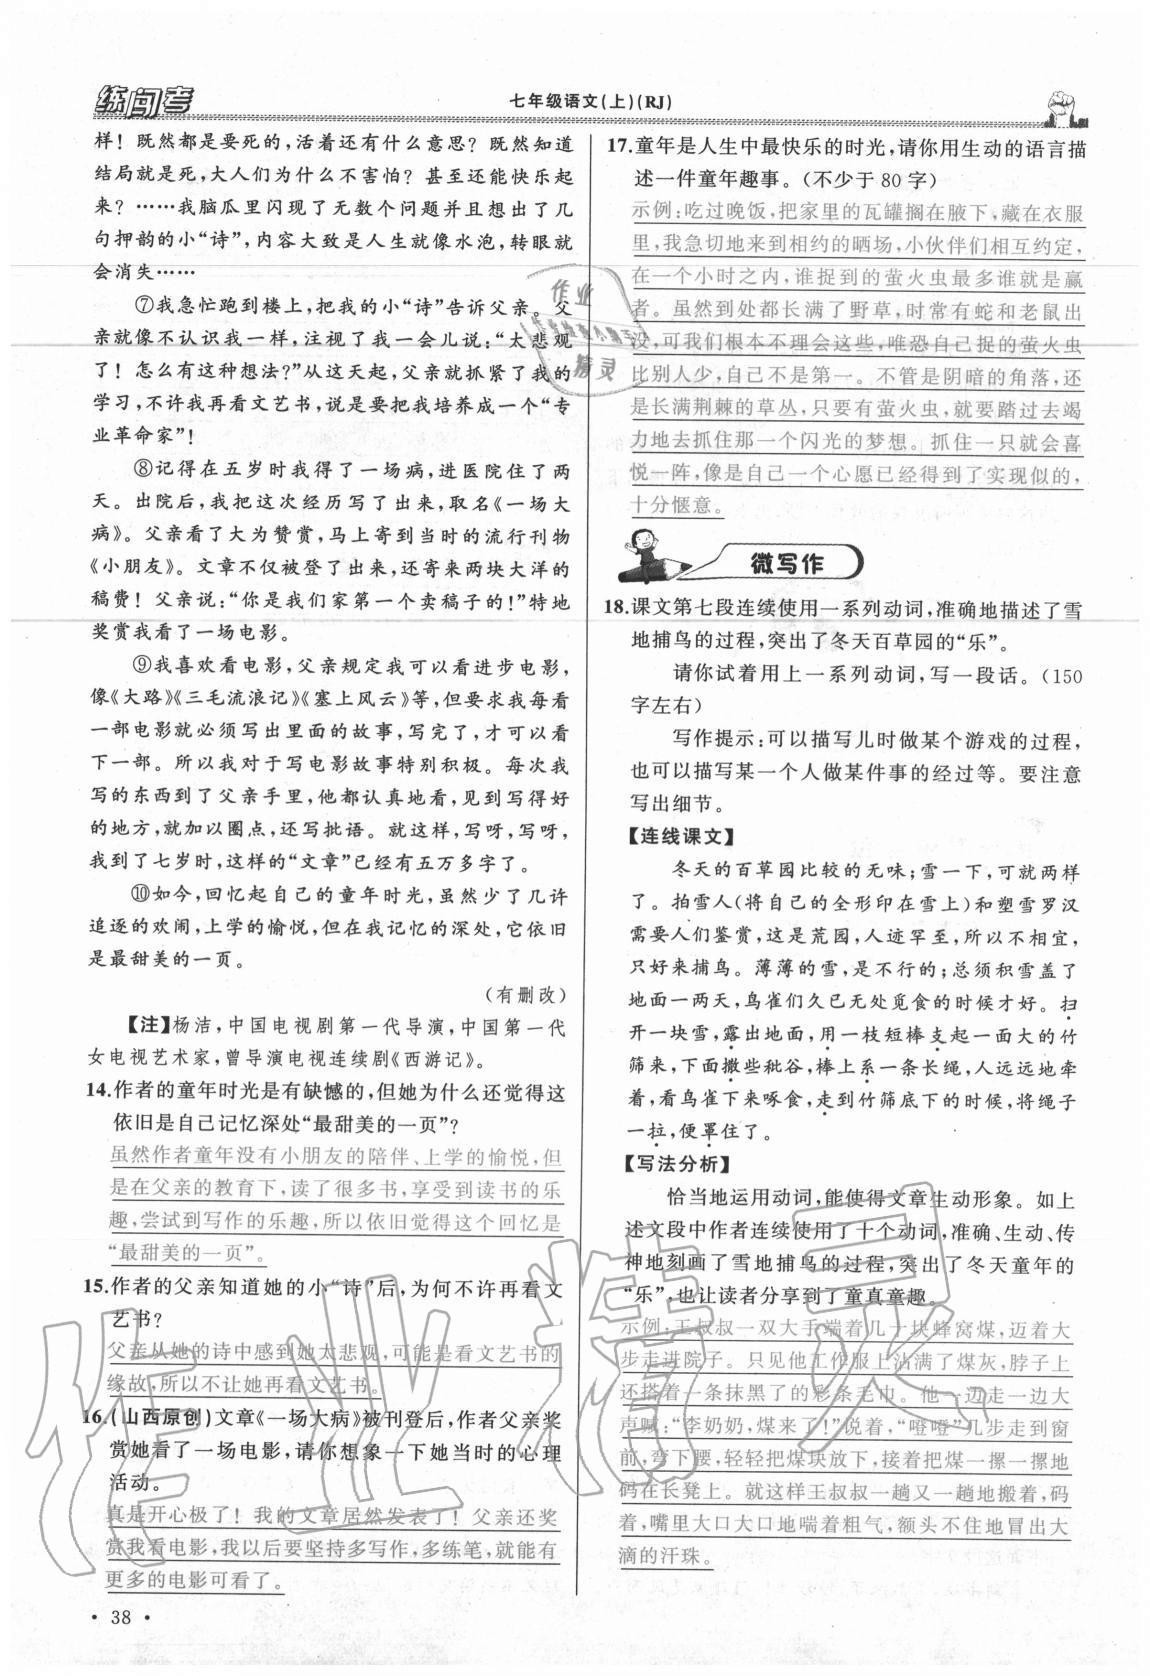 练闯考
七年级语文(上)(RJ)
样！既然都是要死的,活着还有什么意思？既然知道
结局就是死,大人们为什么不害怕？甚至还能快乐起
来？……我脑瓜里闪现了无数个问题并且想出了几
句押韵的小“诗”,内容大致是人生就像水泡,转眼就
会消失……
⑦我急忙跑到楼上,把我的小“诗”告诉父亲。父
亲就像不认识我一样,注视了我一会儿说:“太悲观
了！怎么有这种想法?”从这天起,父亲就抓紧了我的
学习,不许我再看文艺书,说是要把我培养成一个“专
业革命家”！
⑧记得在五岁时我得了一场病,进医院住了两
天。出院后,我把这次经历写了出来,取名《一场大
病》。父亲看了大为赞赏,马上寄到当时的流行刊物
《小朋友》。文章不仅被登了出来,还寄来两块大洋的
稿费！父亲说:“你是我们家第一个卖稿子的!”特地
奖赏我看了一场电影。
⑨我喜欢看电影,父亲规定我可以看进步电影,
像《大路》《三毛流浪记》《塞上风云》等,但要求我每看
一部电影就必须写出里面的故事,写完了,才可以看
下一部。所以我对于写电影故事特别积极。每次我
写的东西到了父亲手里,他都认真地看,见到写得好
的地方,就加以圈点,还写批语。就这样,写呀,写呀,
我到了七岁时,这样的“文章”已经有五万多字了。
⑩如今,回忆起自己的童年时光,虽然少了几许
追逐的欢闹,上学的愉悦,但在我记忆的深处,它依旧
是最甜美的一页。
(有删改)
【注】杨洁,中国电视剧第一代导演,中国第一代
女电视艺术家,曾导演电视连续剧《西游记》。
14.作者的童年时光是有缺憾的,但她为什么还觉得这
依旧是自己记忆深处“最甜美的一页”?
虽然作者童年没有小朋友的陪伴、上学的愉悦,但
是在父亲的教育下,读了很多书,享受到读书的乐
趣,尝试到写作的乐趣,所以依旧觉得这个回忆是
“最甜美的一页”。
15.作者的父亲知道她的小“诗”后,为何不许再看文
艺书?
父亲从她的诗中感到她太悲观,可能是看文艺书的
缘故,所以不让她再看文艺书。
16.(山西原创)文章《一场大病》被刊登后,作者父亲奖
赏她看了一场电影,请你想象一下她当时的心理
活动。
真是开心极了！我的文章居然发表了！父亲还奖
赏我看电影,我以后要坚持多写作,多练笔,就能有
更多的电影可看了。
• 38 •
17.童年是人生中最快乐的时光,请你用生动的语言描
述一件童年趣事。(不少于 80 字)
示例:吃过晚饭,把家里的瓦罐搁在腋下,藏在衣服
里,我急切地来到相约的晒场,小伙伴们相互约定,
在一个小时之内,谁捉到的萤火虫最多谁就是赢
者。虽然到处都长满了野草,时常有蛇和老鼠出
没,可我们根本不理会这些,唯恐自己捉的萤火虫
比别人少,自己不是第一。不管是阴暗的角落,还
是长满荆棘的草丛,只要有萤火虫,就要踏过去竭
力地去抓住那一个闪光的梦想。抓住一只就会喜
悦一阵,像是自己一个心愿已经得到了实现似的,
十分惬意。
微写作
18.课文第七段连续使用一系列动词,准确地描述了雪
地捕鸟的过程,突出了冬天百草园的“乐”。
请你试着用上一系列动词,写一段话。(150
字左右)
写作提示:可以描写儿时做某个游戏的过程,
也可以描写某一个人做某件事的经过等。要注意
写出细节。
【连线课文】
冬天的百草园比较的无味;雪一下,可就两样
了。拍雪人(将自己的全形印在雪上)和塑雪罗汉
需要人们鉴赏,这是荒园,人迹罕至,所以不相宜,
只好来捕鸟。薄薄的雪,是不行的;总须积雪盖了
地面一两天,鸟雀们久已无处觅食的时候才好。扫
开一块雪,露出地面,用一枝短棒支起一面大的竹
筛来,下面撒些秕谷,棒上系一条长绳,人远远地牵
着,看鸟雀下来啄食,走到竹筛底下的时候,将绳子
一拉,便罩住了。
【写法分析】
恰当地运用动词,能使得文章生动形象。如上
述文段中作者连续使用了十个动词,准确、生动、传
神地刻画了雪地捕鸟的过程,突出了冬天童年的
“乐”,也让读者分享到了童真童趣。
示例:王叔叔一双大手端着几十块蜂窝煤,迈着大
步走进院子。只见他工作服上沾满了煤灰,脖子上
还搭着一条抹黑了的彩条毛巾。他一边走一边大
声喊:“李奶奶,煤来了!”说着,“噔噔”几步走到窗
前,弯下腰,轻轻把煤块放下,接着把煤一摞一摞地
码在长凳上。就这样王叔叔一趟又一趟地搬着,码
着,嘴里大口大口地喘着粗气,额头不住地冒出大
滴的汗珠。
作业
精灵
作业精灵